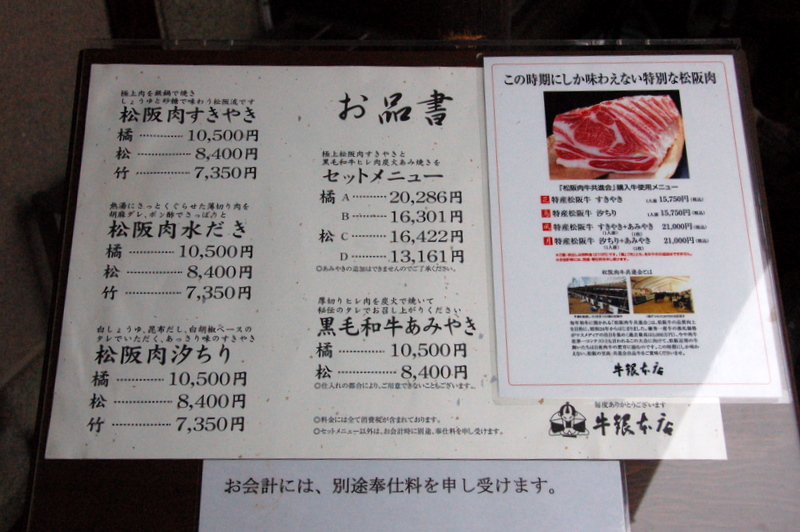 お品書
極上肉を鉄鍋で焼き
しょうゆと砂糖で味わう松阪流です
松阪肉すきやき
橘 ………… 10,500円
松 ………… 8,400円
竹 ………… 7,350円
熱湯にさっとくぐらせた薄切り肉を
胡麻ダレ、ポン酢でさっぱりと
松阪肉水だき
橘 ………… 10,500円
松 ………… 8,400円
竹 ………… 7,350円
白しょうゆ、昆布だし、白胡椒ベースの
タレでいただく、あっさり味のすきやき
松阪肉汐ちり
橘 ………… 10,500円
松 ………… 8,400円
竹 ………… 7,350円
極上松阪肉すきやきと
黒毛和牛ヒレ肉炭火あみ焼きを
セットメニュー
橘 A ………… 20,286円
B ………… 16,301円
松 C ………… 16,422円
D ………… 13,161円
○あみやきの追加はできませんのでご了承ください。
厚切りヒレ肉を炭火で焼いて
秘伝のタレでお召し上がりください
黒毛和牛あみやき
橘 ………… 10,500円
松 ………… 8,400円
○仕入れの都合により、ご用意できないこともございます。
○料金には全て消費税が含まれております。
○セットメニュー以外は、お会計時に別途、奉仕料を申し受けます。
毎度ありがとうございます
牛銀本店
この時期にしか味わえない特別な松阪肉
「松阪肉牛共進会」購入牛使用メニュー
特産松阪牛 すきやき 1人前 15,750円(税込)
特産松阪牛 汐ちり 1人前 15,750円(税込)
月 特産松阪牛 すきやき+あみやき 21,000円(税込)
(1人前) (1枚)
特産松阪牛 汐ちり+あみやき 21,000円(税込)
(1人前) (1枚)
松阪肉牛共進会とは
牛銀本店
お会計には、別途奉仕料を申し受けます。